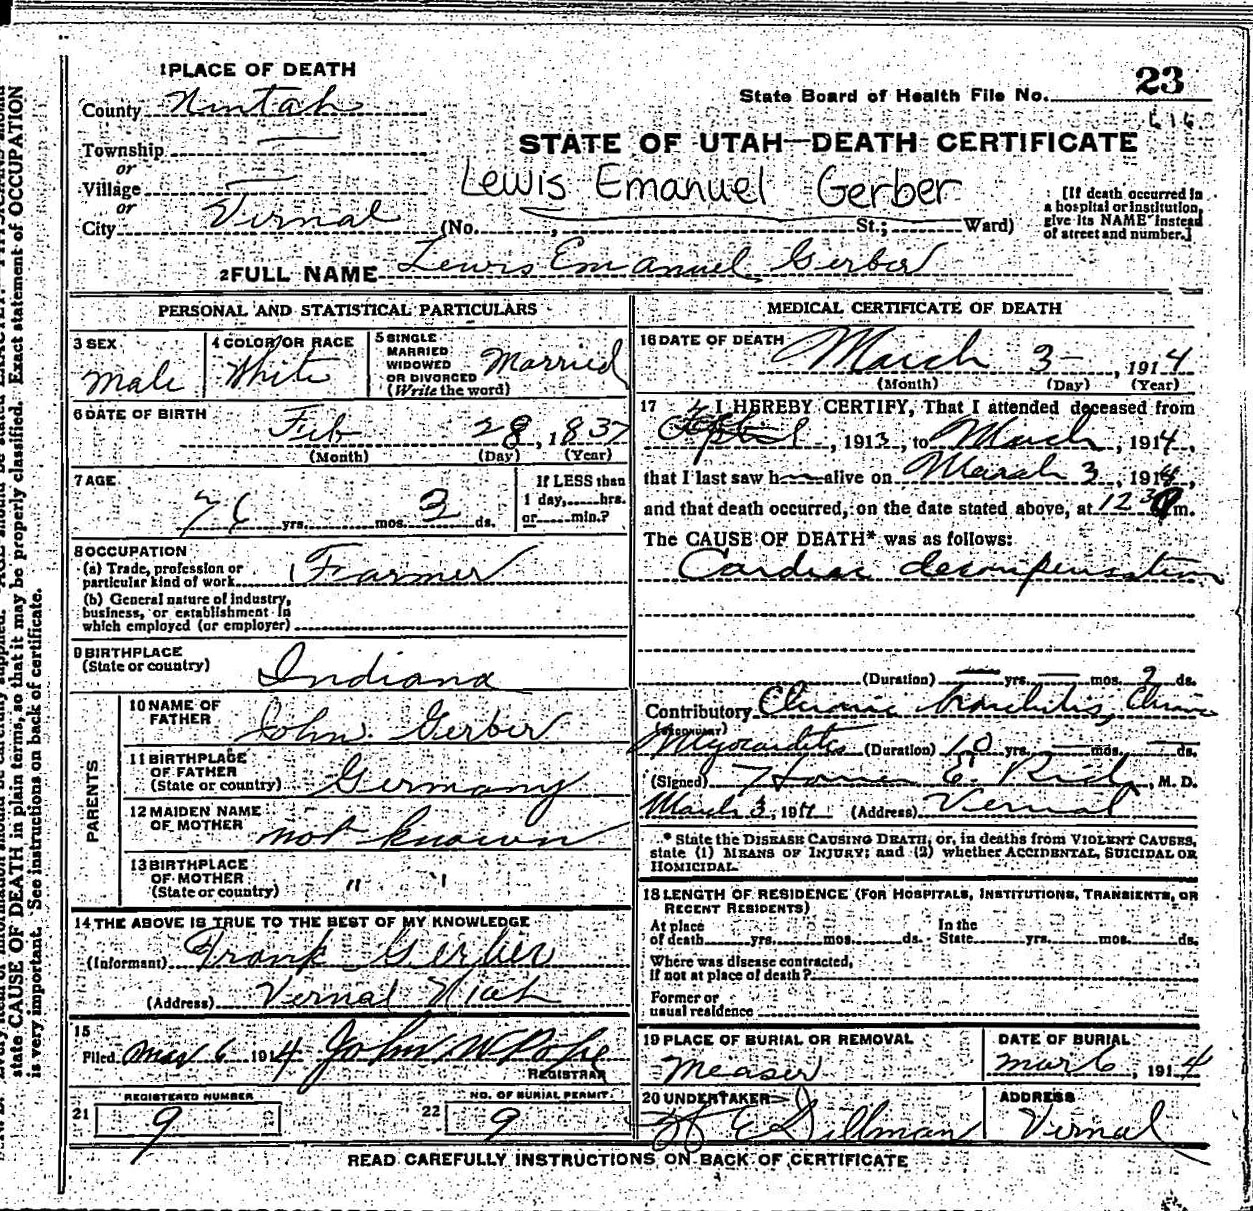 state CAUSE OF DEATH in plain terms, so that it may be properly classified. Exact statement of OCCUPATION
is very important. See instructions on back of certificate.
1 PLACE OF DEATH
23
State Board of Health File No.
616
County Uintah
STATE OF UTAH—DEATH CERTIFICATE
Township —
or
Lewis Emanuel Gerber
Village —
or
[If death occurred in a hospital or institution, give its NAME instead of street and number.]
City Vernal (No. , St.; Ward)
2 FULL NAME Lewis Emanuel Gerber
PERSONAL AND STATISTICAL PARTICULARS
3 SEX
Male
4 COLOR OR RACE
White
5 SINGLE
MARRIED
WIDOWED
OR DIVORCED
(Write the word)
Married
6 DATE OF BIRTH
Feb 28, 1837
(Month) (Day) (Year)
7 AGE
76 yrs. mos. 3 ds.
If LESS than
1 day, hrs.
or min.?
8 OCCUPATION
(a) Trade, profession or
particular kind of work Farmer
(b) General nature of industry,
business, or establishment in
which employed (or employer)
9 BIRTHPLACE
(State or country) Indiana
PARENTS
10 NAME OF
FATHER John Gerber
11 BIRTHPLACE
OF FATHER
(State or country) Germany
12 MAIDEN NAME
OF MOTHER not known
13 BIRTHPLACE
OF MOTHER
(State or country) " "
14 THE ABOVE IS TRUE TO THE BEST OF MY KNOWLEDGE
(Informant) Frank Gerber
(Address) Vernal Utah
15
Filed Mar 6 1914 John W Pope
REGISTRAR
REGISTERED NUMBER
21 9
NO. OF BURIAL PERMIT
22 9
MEDICAL CERTIFICATE OF DEATH
16 DATE OF DEATH
March 3-, 1914
(Month) (Day) (Year)
17 I HEREBY CERTIFY, That I attended deceased from
, 1913, to March, 1914,
that I last saw h alive on March 3, 1914,
and that death occurred, on the date stated above, at 12 30 P m.
The CAUSE OF DEATH* was as follows:
Cardiac decompensation
(Duration) — yrs. — mos. 2 ds.
Contributory Chronic bronchitis, Chronic
(SECONDARY)
Myocarditis (Duration) 10 yrs. — mos. — ds.
(Signed) Homer E. Rich, M. D.
March 3, 1914 (Address) Vernal
* State the DISEASE CAUSING DEATH, or, in deaths from VIOLENT CAUSES,
state (1) MEANS OF INJURY; and (2) whether ACCIDENTAL, SUICIDAL OR
HOMICIDAL.
18 LENGTH OF RESIDENCE (FOR HOSPITALS, INSTITUTIONS, TRANSIENTS, OR
RECENT RESIDENTS)
At place
of death yrs. mos. ds. In the State yrs. mos. ds.
Where was disease contracted,
if not at place of death?
Former or
usual residence
19 PLACE OF BURIAL OR REMOVAL
Measer
DATE OF BURIAL
Mar 6, 1914
20 UNDERTAKER
W E Dillman
ADDRESS
Vernal
READ CAREFULLY INSTRUCTIONS ON BACK OF CERTIFICATE